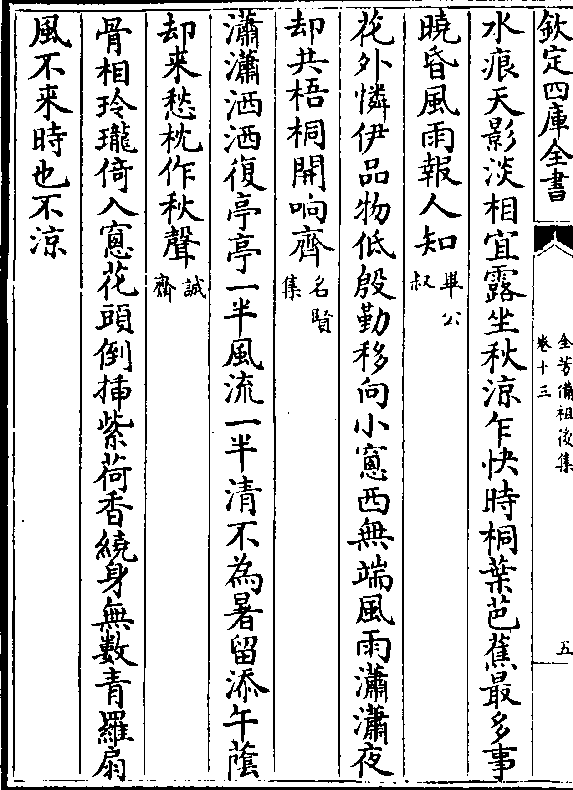 欽定四庫全書
全芳備祖後集
卷十三
五
水痕天影淡相宜露坐秋涼乍快時桐葉芭蕉最多事
曉昏風雨報人知畢公叔
花外憐伊品物低殷勤移向小窻西無端風雨瀟瀟夜
却共梧桐開响齊名賢集
瀟瀟洒洒復亭亭一半風流一半清不為暑留添午蔭
却来愁枕作秋聲誠齋
骨相玲瓏倚入窻花頭倒揷紫荷香繞身無數青羅扇
風不来時也不涼